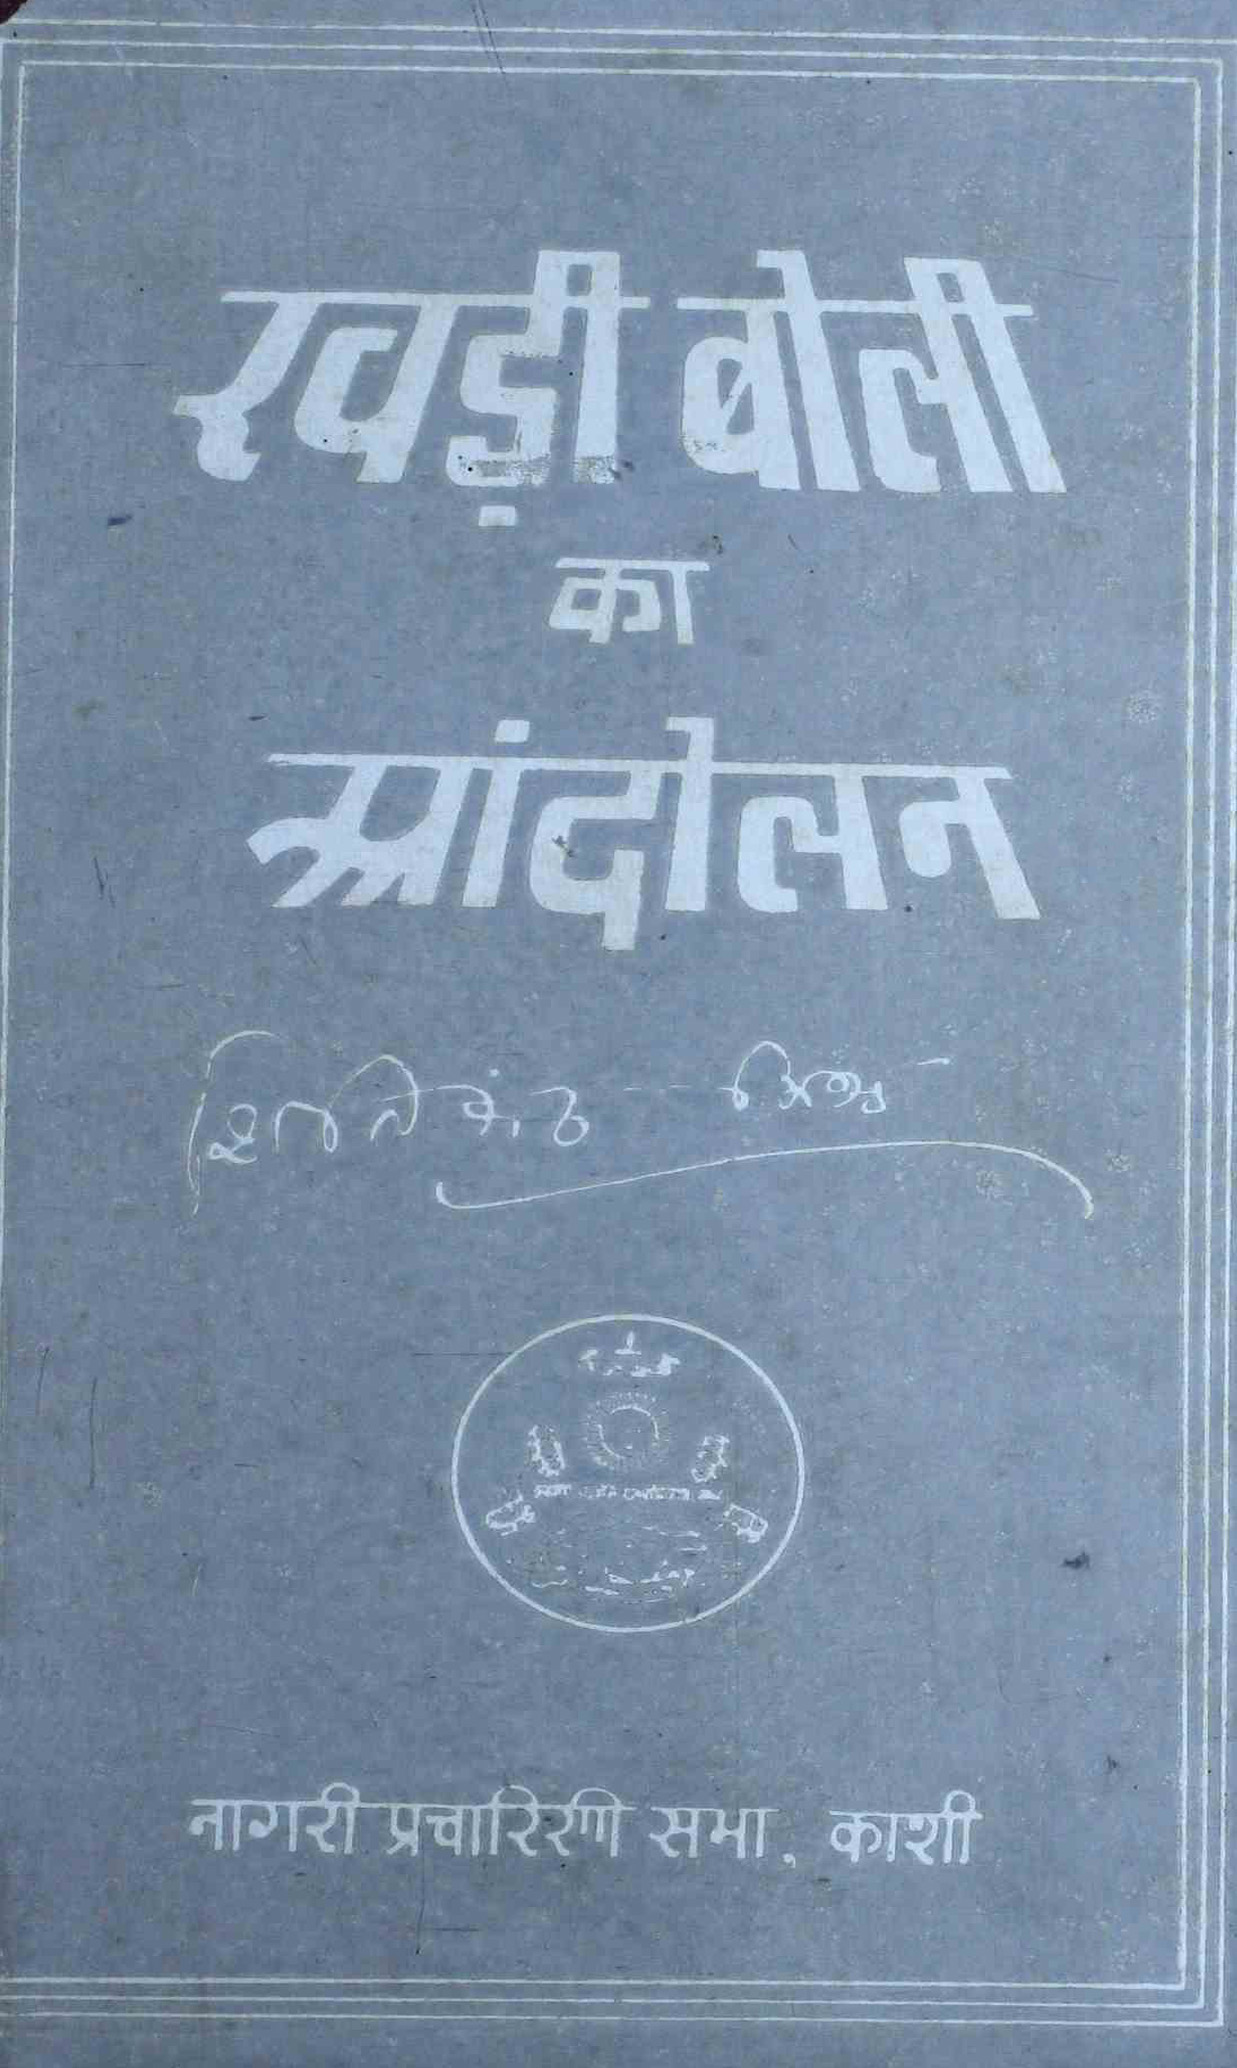 खड़ी बोली
का
आंदोलन
शितिकंठ मिश्र
नागरी प्रचारिणी सभा, काशी